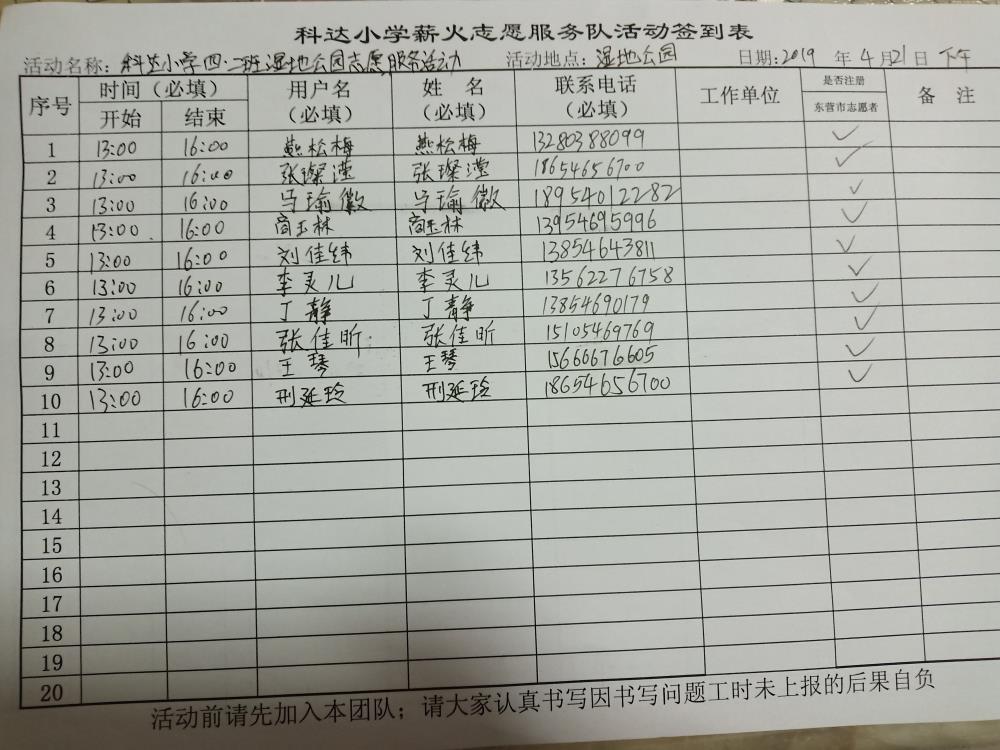 科达小学薪火志愿服务队活动签到表
活动名称：科达小学四.二班湿地公园志愿服务活动 活动地点：湿地公园 日期：2019 年 4 月 21 日 下午
序号 时间（必填） 用户名（必填） 姓 名（必填） 联系电话（必填） 工作单位 是否注册东营市志愿者 备 注
开始 结束
1 13:00 16:00 燕松梅 燕松梅 13280388099 ✓
2 13:00 16:00 张璨滢 张璨滢 18654656700 ✓
3 13:00 16:00 马瑜徽 马瑜徽 18954012282 ✓
4 13:00 16:00 商玉林 商玉林 13954695996 ✓
5 13:00 16:00 刘佳纬 刘佳纬 13854643811 ✓
6 13:00 16:00 李灵儿 李灵儿 13562276758 ✓
7 13:00 16:00 丁静 丁静 13854690179 ✓
8 13:00 16:00 张佳昕 张佳昕 15105469769 ✓
9 13:00 16:00 王琴 王琴 15660676605 ✓
10 13:00 16:00 邢延玲 邢延玲 18654656700 ✓
11
12
13
14
15
16
17
18
19
20
活动前请先加入本团队；请大家认真书写因书写问题工时未上报的后果自负